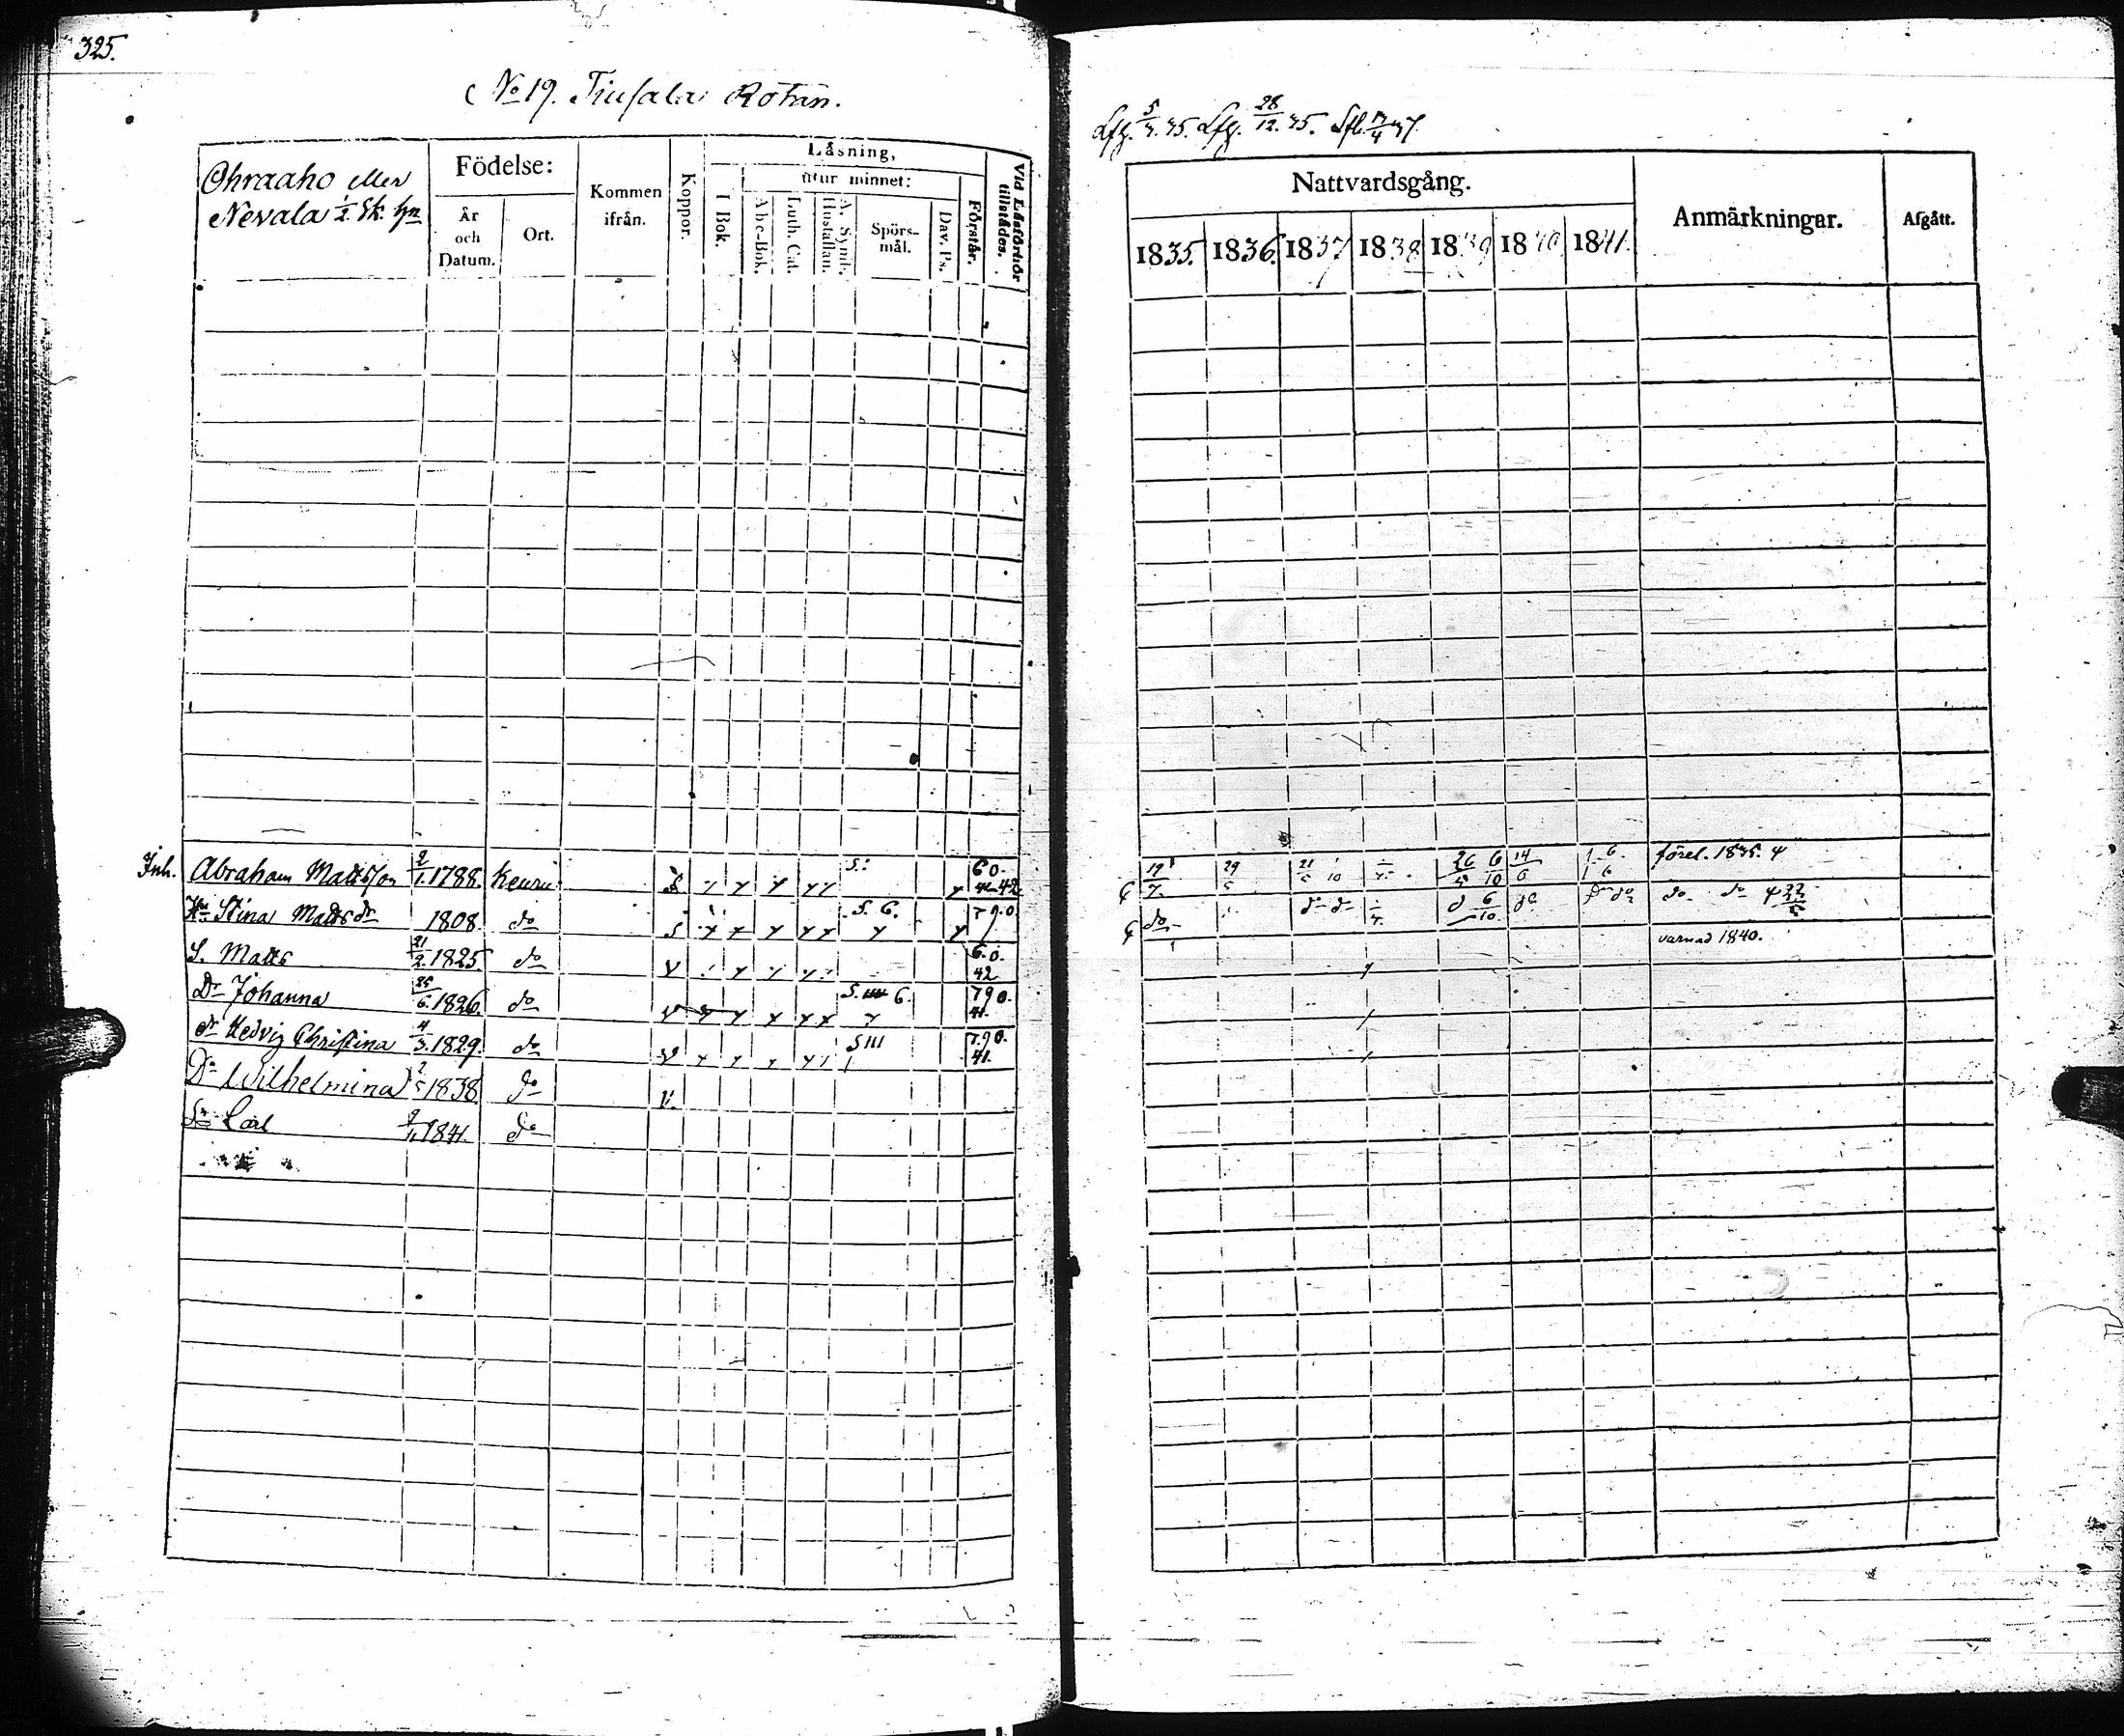 325.
No 19. Tiusala Rotan.
Ohraaho eller
Nevala 1/2 Sk. hn
Födelse:
År och Datum.
Ort.
Kommen ifrån.
Koppor.
Läsning,
I Bok.
utur minnet:
Abc-Bok.
Luth. Cat.
A. Symb. Hustaflan.
Spörsmål.
Dav. Ps.
Förstår.
Vid Läsförhör tillstådes.
Inh. Abraham Mattsson 2/1. 1788. Keuru S: 60. 42
Hu Stina Matts dr 1808. do S. 6. 79.0
S. Matts 21/2. 1825. do v 6.0. 42
Dr Johanna 25/6. 1826. do v S. 6. 790. 41.
dr Hedvig Christina 4/3. 1829. do v SIII 7.90. 41.
Dr Wilhelmina 2/5 1838. do v.
Sn Carl 1841. do
28/12. 45.
Nattvardsgång.
1835. 1836. 1837 1838 1839 1840 1841.
Anmärkningar.
Afgått.
19/7. 29/5 21/5 26/5 6/10 14/6 förel. 1835.
do d d 6/10 do do do do 22/5
varnad 1840.